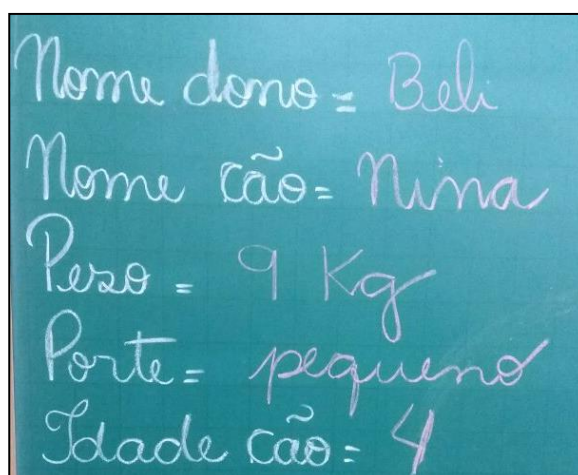 Nome dono = Beli
Nome cão = Nina
Peso = 9 Kg
Porte = pequeno
Idade cão = 4